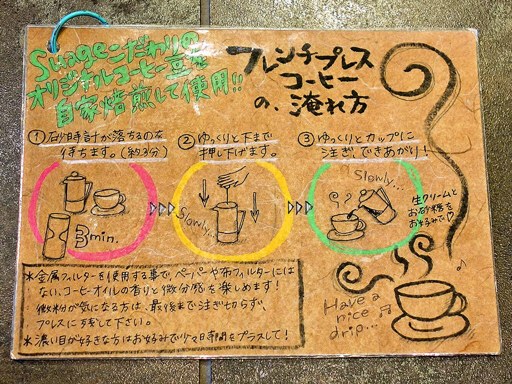 Suageこだわりの
オリジナルコーヒー豆を
自家焙煎して使用!!
フレンチプレス
コーヒー
の、淹れ方
① 砂時計が落ちるのを
待ちます。(約3分)
② ゆっくりと下まで
押し下げます。
③ ゆっくりとカップに
注ぎ、できあがり!
3min.
Slowly...
Slowly...
生クリームと
お砂糖を
お好みで♡
※金属フィルターを使用する事で、ペーパーや布フィルターには
ない、コーヒーオイルの香りと微分感を楽しめます!
微粉が気になる方は、最後まで注ぎ切らず、
プレスに残して下さい。
※濃い目が好きな方はお好みで少々時間をプラスして!
Have a
nice
drip...